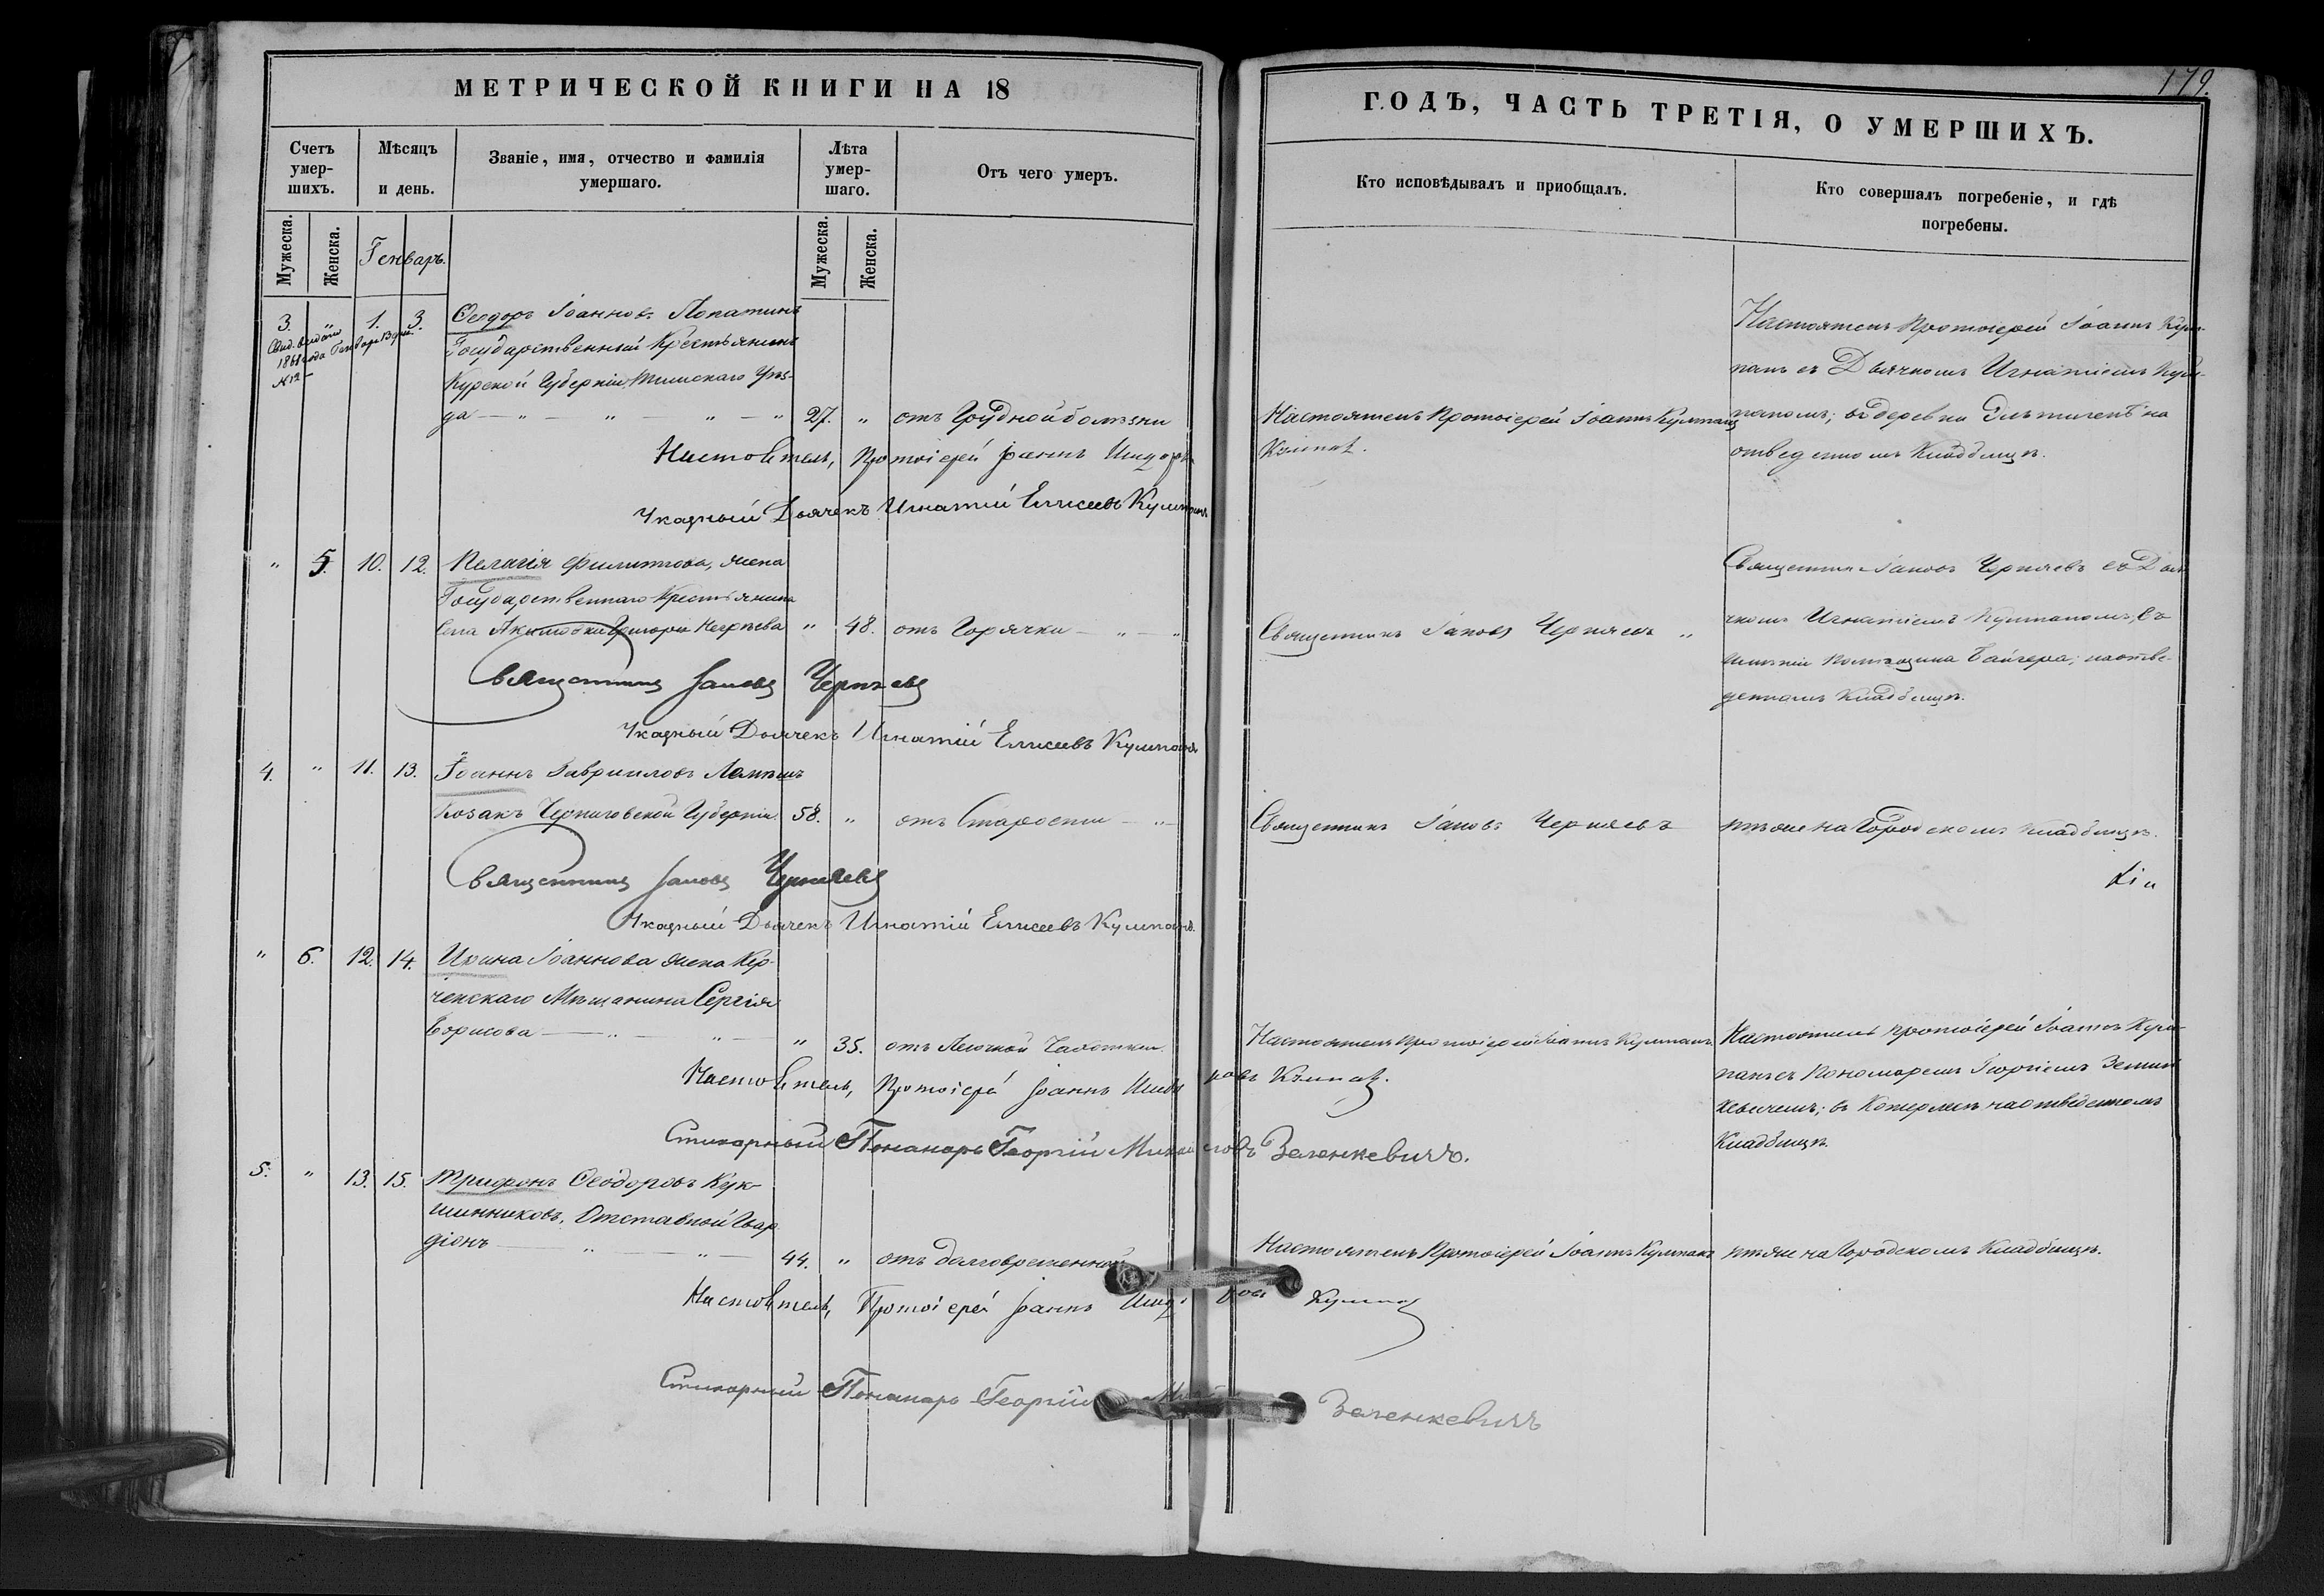 МЕТРИЧЕСКОЙ КНИГИ НА 18
ГОДЪ, ЧАСТЬ ТРЕТІЯ, О УМЕРШИХЪ.
179.
Счетъ умер-шихъ.
Мѣсяцъ и день.
Званіе, имя, отчество и фамилія умершаго.
Лѣта умер-шаго.
Отъ чего умеръ.
Кто исповѣдывалъ и приобщалъ.
Кто совершалъ погребеніе, и гдѣ погребены.
Мужеска.
Женска.
Генварь.
Мужеска.
Женска.
3. " 1. 3.
1868 года Генваря 13 дня
№ 12
Ѳеодоръ Іоанновъ Лопатинъ
Государственный Крестьянинъ
Курской Губерніи Тимскаго Уѣз-
да — " — " — " — "
27. " отъ Грудной болѣзни
Настоятель Протоіерей Іоаннъ Кумпанъ
Настоятель Протоіерей Іоаннъ Кум-
панъ съ Дьячкомъ Игнатіемъ Кум-
паномъ; въ деревни на
отведенномъ Кладбищѣ.
Настоятель, Протоіерей Іоаннъ Кумпанъ.
Указный Дьячекъ Игнатій Елисеевъ Кумпанъ
" 5. 10. 12.
Пелагія Филиппова, жена
Государственнаго Крестьянина
Села Григорія
" 48. отъ Горячки — " — "
Священникъ Іаковъ Черняевъ "
Священникъ Іаковъ Черняевъ съ Дья-
чкомъ Игнатіемъ Кумпаномъ, въ
имѣніи Помѣщика; на отве-
денномъ Кладбищѣ.
Священникъ Іаковъ Черняевъ
Указный Дьячекъ Игнатій Елисеевъ Кумпанъ
4. " 11. 13.
Іоаннъ Гавриловъ
Козакъ Черниговской Губерніи.
58. " отъ Старости — "
Священникъ Іаковъ Черняевъ
тѣже на Городскомъ Кладбищѣ.
Священникъ Іаковъ Черняевъ
Указный Дьячекъ Игнатій Елисеевъ Кумпанъ.
" 6. 12. 14.
Ирина Іоаннова жена Кер-
ченскаго Мѣщанина Сергія
Борисова — " — " —
" 35. отъ Легочной Чахотки.
Настоятель Протоіерей Іоаннъ Кумпанъ
Настоятель Протоіерей Іоаннъ Кум-
панъ съ Пономаремъ Георгіемъ Зелин-
кевичемъ; въ на отведенномъ
Кладбищѣ.
Настоятель, Протоіерей Іоаннъ Кумпанъ.
Стихарный Понамарь Георгій Михайловъ Зеленкевичъ.
5. " 13. 15.
Трифонъ Ѳеодоровъ Кук-
шинниковъ, Отставной Гвар-
діонъ — " — " —
44. " отъ долговременной
Настоятель Протоіерей Іоаннъ Кумпанъ
тѣже на Городскомъ Кладбищѣ.
Настоятель, Протоіерей Іоаннъ Кумпанъ
Стихарный Понамарь Георгій Зеленкевичъ